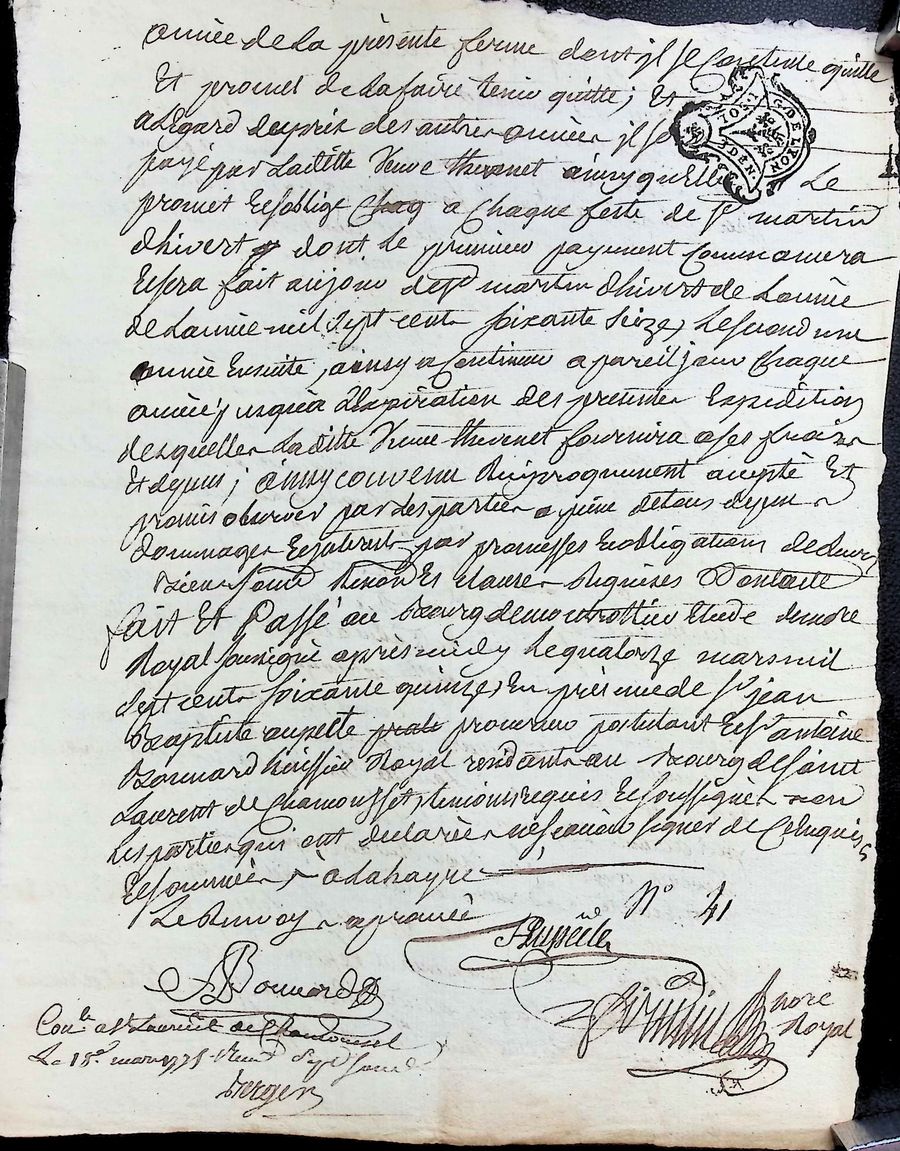 année de la présente ferme dont il se Contente quitte
Et promet de la faire tenir quitte; Et
a légard du prix des autres années il se
payé par Laditte Veuve thevenet ainsy quelle Le
promet Et soblige Chaq a Chaque feste de St martin
dhivert dont le premier payement Commancera
Et sera fait au jour de St martin dhivert de Lannée
de Lannée mil Sept cent soixante Seize, Le second une
année Ensuite, ainsy a Continuer a pareil jour Chaque
année jusqua a Lexpiration des presentes Expédition
desquelles Laditte Veuve thevenet fournira a ses fraix
Et depens; ainsy convenu Reciproquement accepté Et
promis observer par les parties a peine de tous depens
dommages Et interets par promesses Et obligations de leurs
Biens soum Renon Et clauses Requises Dont acte
fait Et Passé au Bourg de montrottier Etude du nore
Royal soussigné après midy le quatorze mars mil
Sept cent soixante quinze, En présence de Sr jean
Baptiste aupelle procureur postulant Et Sr antoine
Bonnard huissier Royal residants au Bourg de Saint
Laurent de Chamousset, temoins requis Et soussignés non
les parties qui ont declarées ne scavoir signer de Ce Enquises
Et sommées, a Lahayre
Le Renvoy approuvé
No 41
ABonnard
nore
Royal
Conllé a St Laurent de Chamousset
Le 15e mars 1775 Reçu Sept sous
Berger
G. DE LYON